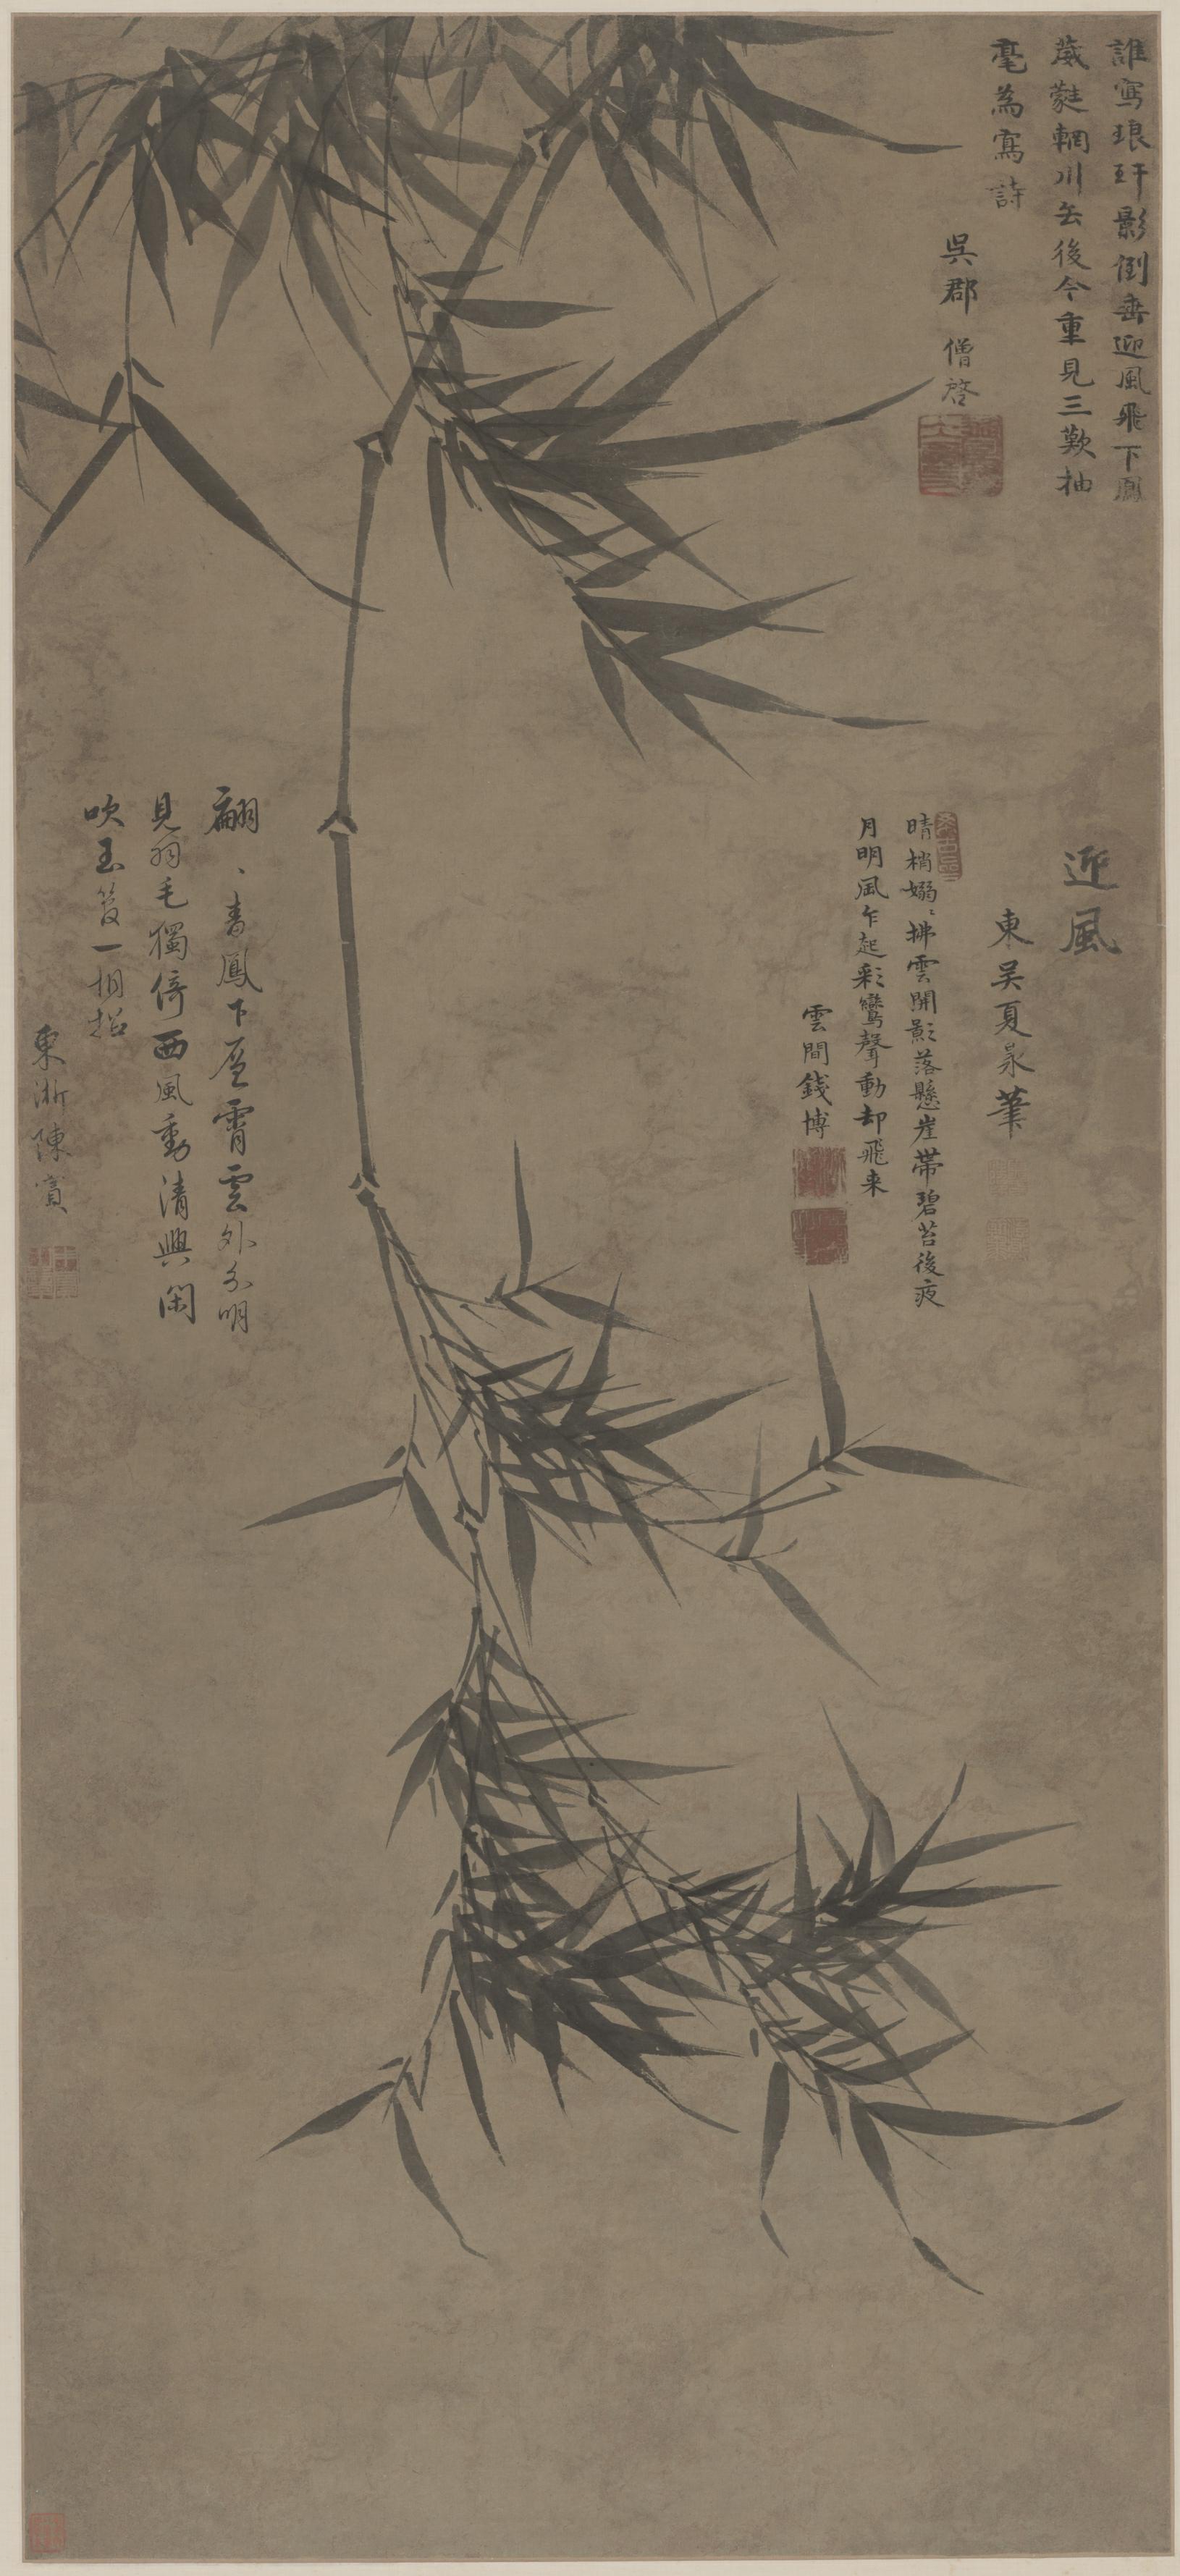 誰寫琅玕影倒垂迎風飛下鳳
葳蕤輞川去後今重見三歎抽
毫為寫詩
吳郡僧啓
迎風
東吳夏㫤筆
晴梢嫋〻拂雲開影落懸崖帶碧苔後夜
月明風乍起彩鸞聲動却飛来
雲間錢博
翩〻青鳳下層霄雲外分明
見羽毛獨倚西風動清興閑
吹玉笛一相招
東浙陳賓